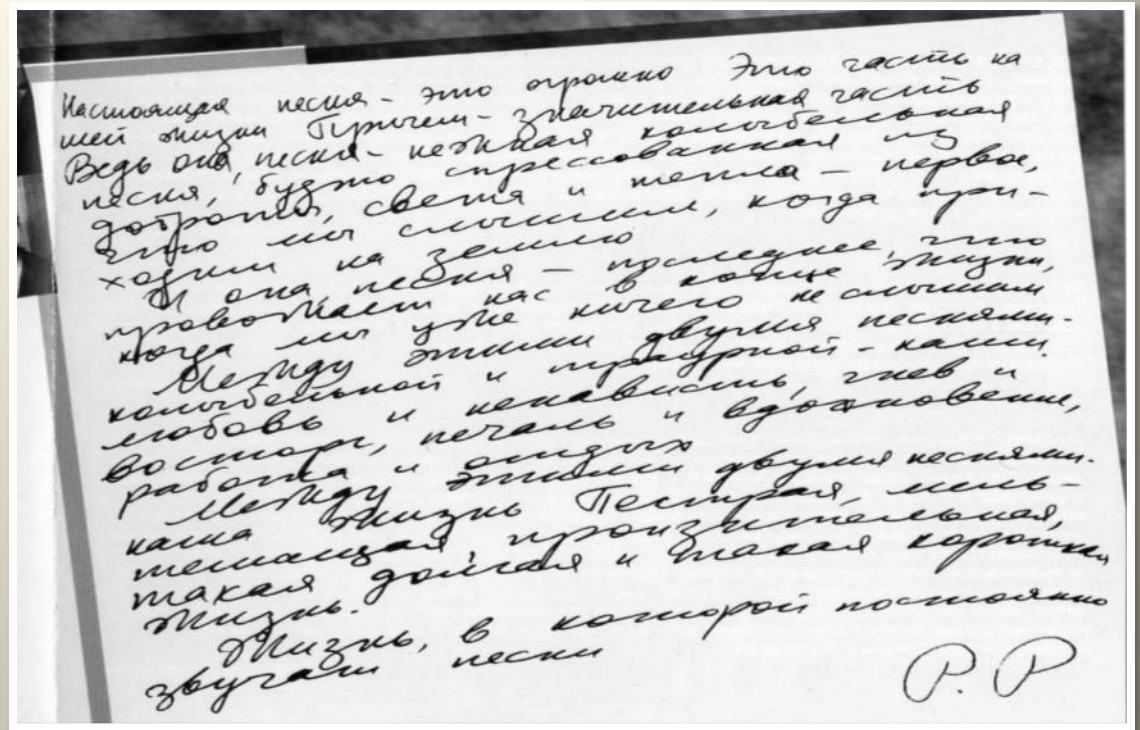 Настоящая песня - это огромно Это часть на
шей жизни Причем - значительная часть
Ведь она, песня - нежная колыбельная
песня, будто спрессованная из
доброты, света и тепла - первое,
что мы слышим, когда при-
ходим на землю
И она песня - последнее, что
провожает нас в конце жизни,
когда мы уже ничего не слышим
Между этими двумя песнями -
колыбельной и траурной - наши
любовь и ненависть, гнев и
восторг, печаль и вдохновение,
работа и отдых
Между этими двумя песнями -
наша жизнь Пестрая, мель-
тешащая, пронзительная,
такая долгая и такая короткая
жизнь.
Жизнь, в которой постоянно
звучат песни
Р. Р